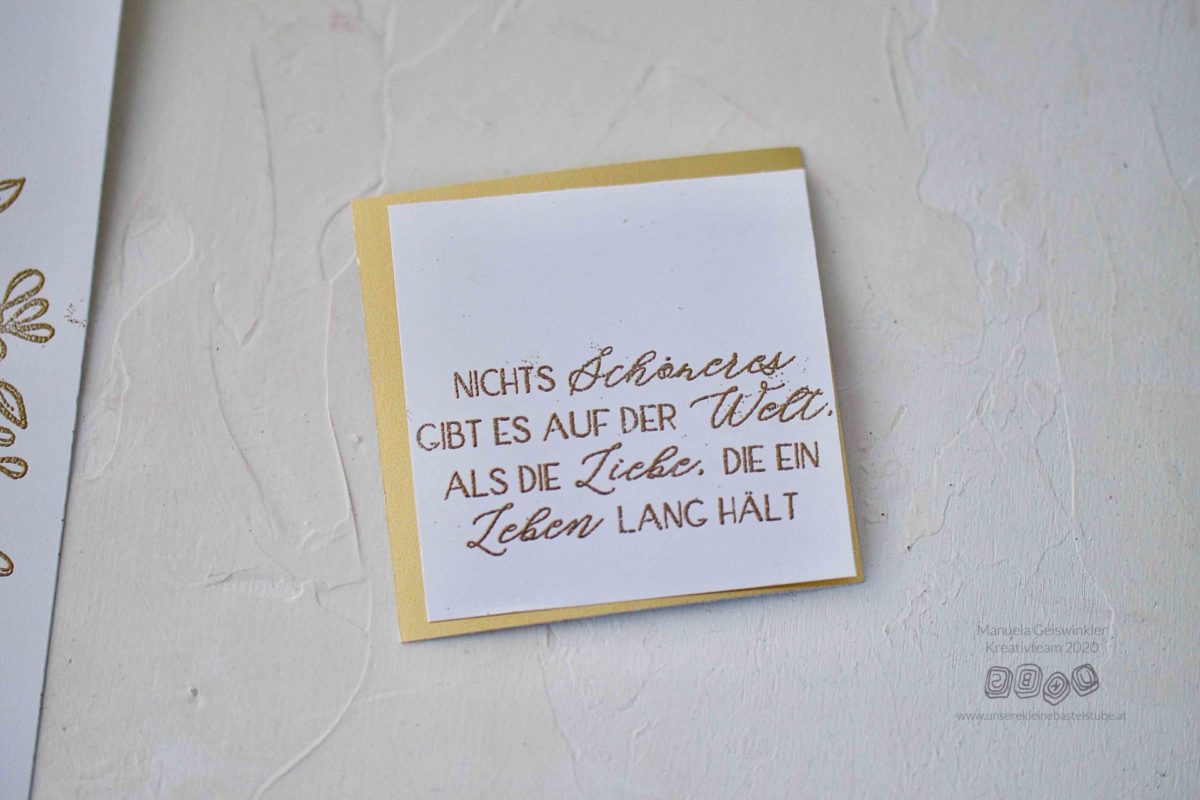 NICHTS Schöneres
GIBT ES AUF DER Welt,
ALS DIE Liebe, DIE EIN
Leben LANG HÄLT
Manuela Geiswinkler
Kreativteam 2020
S B K U
www.unserekleinebastelstube.at